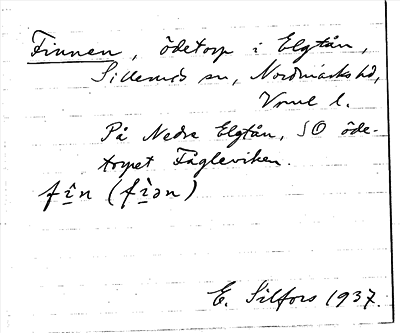 Finnen, ödetorp i Elgtån,
Silleruds sn, Nordmarks hd,
Vrml l.
På Nedre Elgtån, SO öde-
torpet Fågleviken.
fî̬n (fi̬̇ən)
E. Silfors 1937.